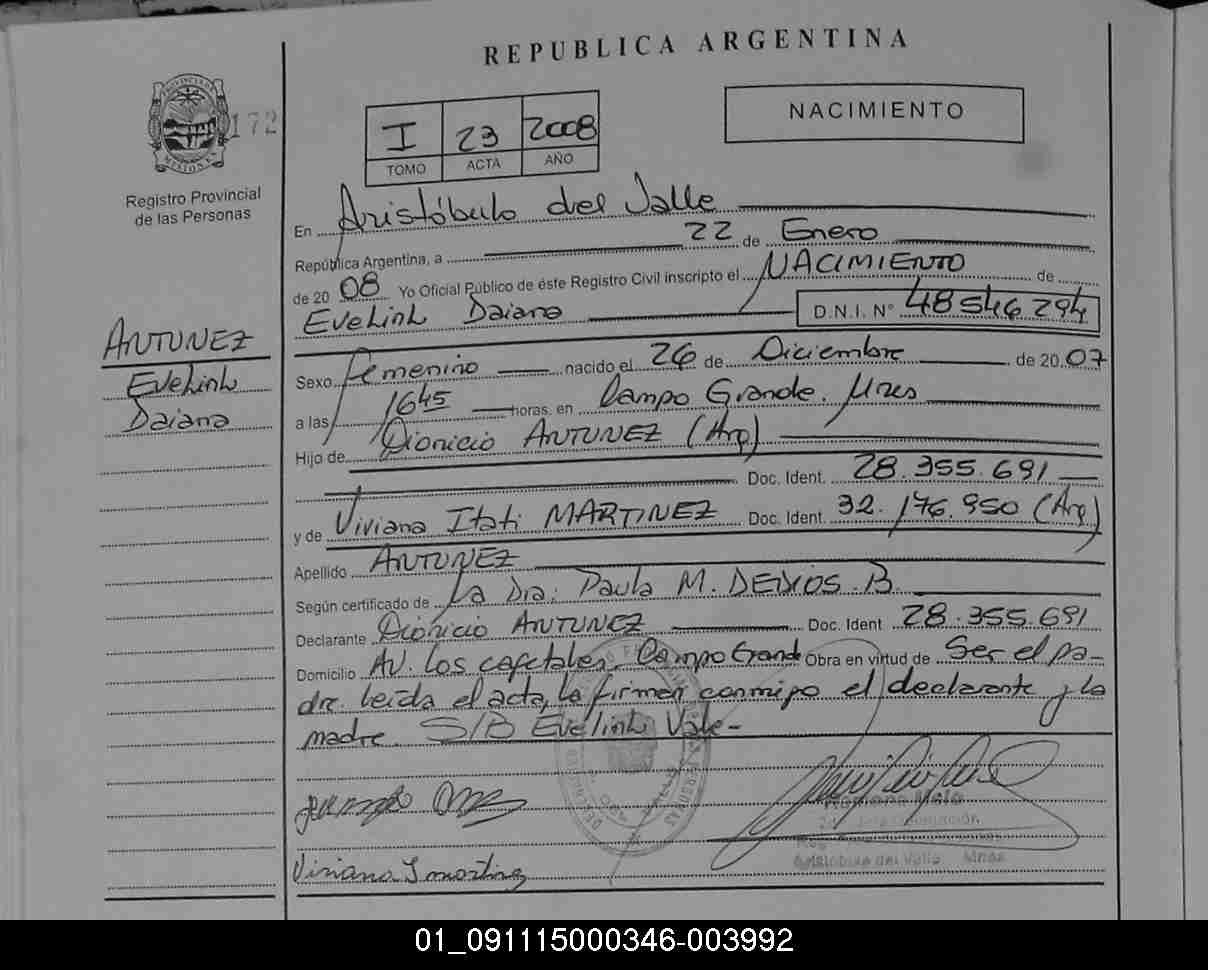 REPUBLICA ARGENTINA
172
Registro Provincial
de las Personas
I 23 2008
TOMO ACTA AÑO
NACIMIENTO
En Aristóbulo del Valle
República Argentina, a 22 de Enero
de 2008 Yo Oficial Público de éste Registro Civil inscripto el NACIMIENTO de
Evelinh Daiana D.N.I. N° 48546294
ANTUNEZ
Evelinh
Daiana
Sexo femenino nacido el 26 de Diciembre de 2007
a las 16 45 horas, en Campo Grande. Mnes
Hijo de Dionicio ANTUNEZ (Arg)
Doc. Ident. 28.355.691
y de Viviana Itati MARTINEZ Doc. Ident. 32.176.950 (Arg)
Apellido ANTUNEZ
Según certificado de La Dra: Paula M. DEIXIOS.B.
Declarante Dionicio ANTUNEZ Doc. Ident 28.355.691
Domicilio AV. Los cafetales, Campo Grande Obra en virtud de Ser el pa-
dre. leída el acta, la firman conmigo el declarante y la
madre. S/B Evelinh Vale-
Viviana I martinez
Aristobulo del Valle Mnes
01_091115000346-003992